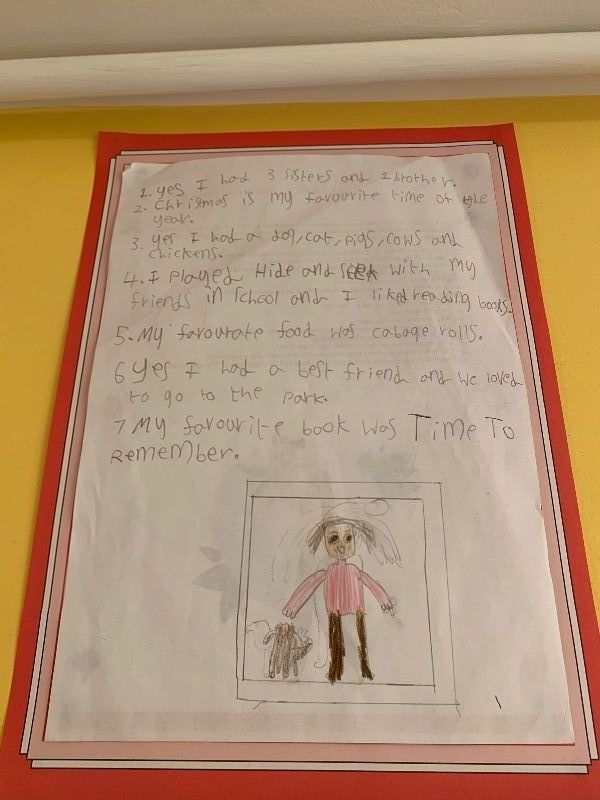 1. yes I had 3 sisters and 1 brother.
2. Christmas is my favourite time of the
year.
3. yes I had a dog, cat, pigs, cows and
chickens.
4. I played Hide and seek with my
friends in school and I liked reading books.
5. My favourate food was cabage rolls.
6 yes I had a best friend and we loved
to go to the park.
7 My favourite book was Time To
Remember.